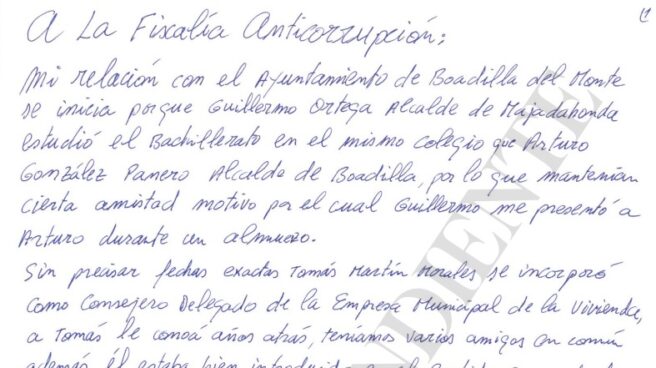 A La Fiscalía Anticorrupción;
Mi relación con el Ayuntamiento de Boadilla del Monte
se inicia porque Guillermo Ortega Alcalde de Majadahonda
estudió el Bachillerato en el mismo colegio que Arturo
González Panero Alcalde de Boadilla, por lo que mantenían
cierta amistad motivo por el cual Guillermo me presentó a
Arturo durante un almuerzo.
Sin precisar fechas exactas Tomás Martín Morales se incorporó
como Consejero Delegado de la Empresa Municipal de la Vivienda,
a Tomás le conocí años atrás, teníamos varios amigos en común
además él estaba bien introducido en el
NDIENTE